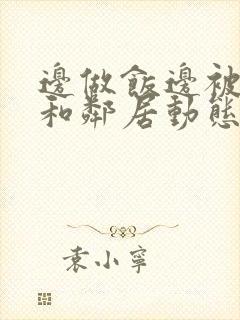 邊做飯邊被
和鄰居動態
袁小寧